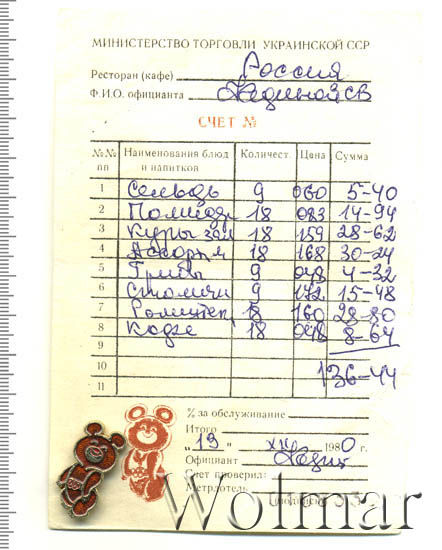 МИНИСТЕРСТВО ТОРГОВЛИ УКРАИНСКОЙ ССР
Ресторан (кафе) Россия
Ф.И.О. официанта
СЧЕТ №
№№ пп Наименования блюд и напитков Количест. Цена Сумма
1 Сельдь 9 060 5-40
2 18 083 14-94
3 Куры 18 159 28-62
4 18 168 30-24
5 Грибы 9 048 4-32
6 9 172 15-48
7 18 160 28-80
8 Кофе 18 048 8-64
9
10 136-44
11
% за обслуживание
Итого
"19" 1980 г.
Официант
Счет проверил:
Метрдотель
(подпись)
Wolmar